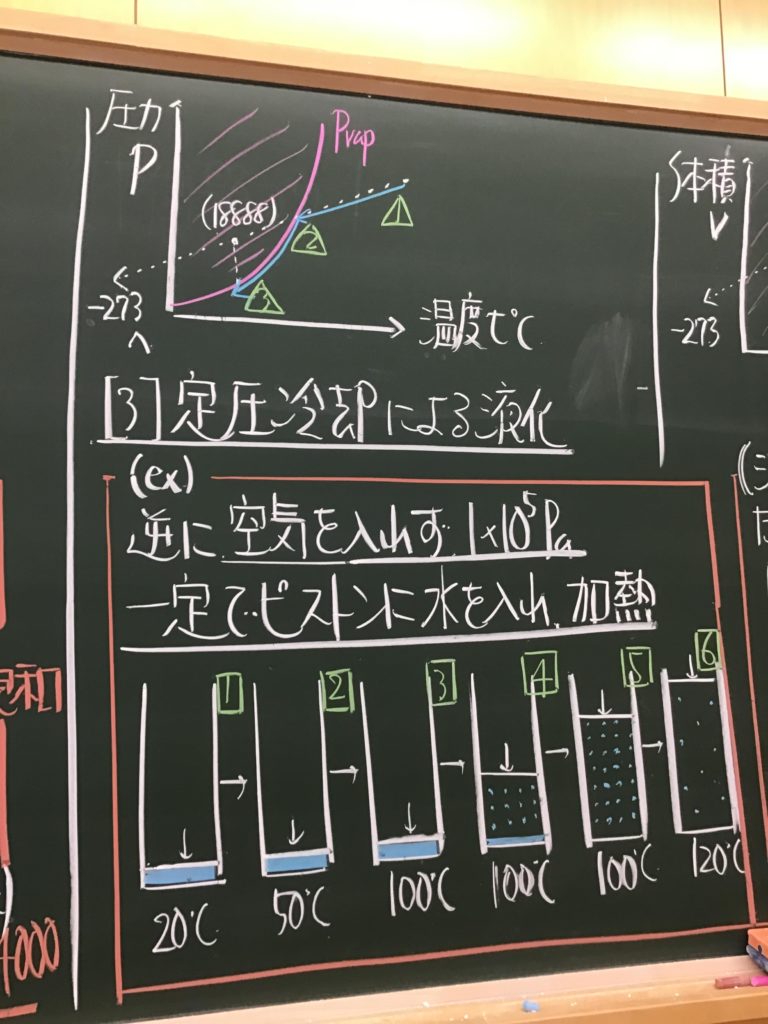 圧力
P
Pvap
(18888)
1
2
3
-273
^
温度t℃
体積
V
-273
[3] 定圧冷却による液化
(ex)
逆に空気を入れず 1×10⁵Pa
一定でピストンに水を入れ、加熱
1 2 3 4 5 6
20℃ 50℃ 100℃ 100℃ 100℃ 120℃
和